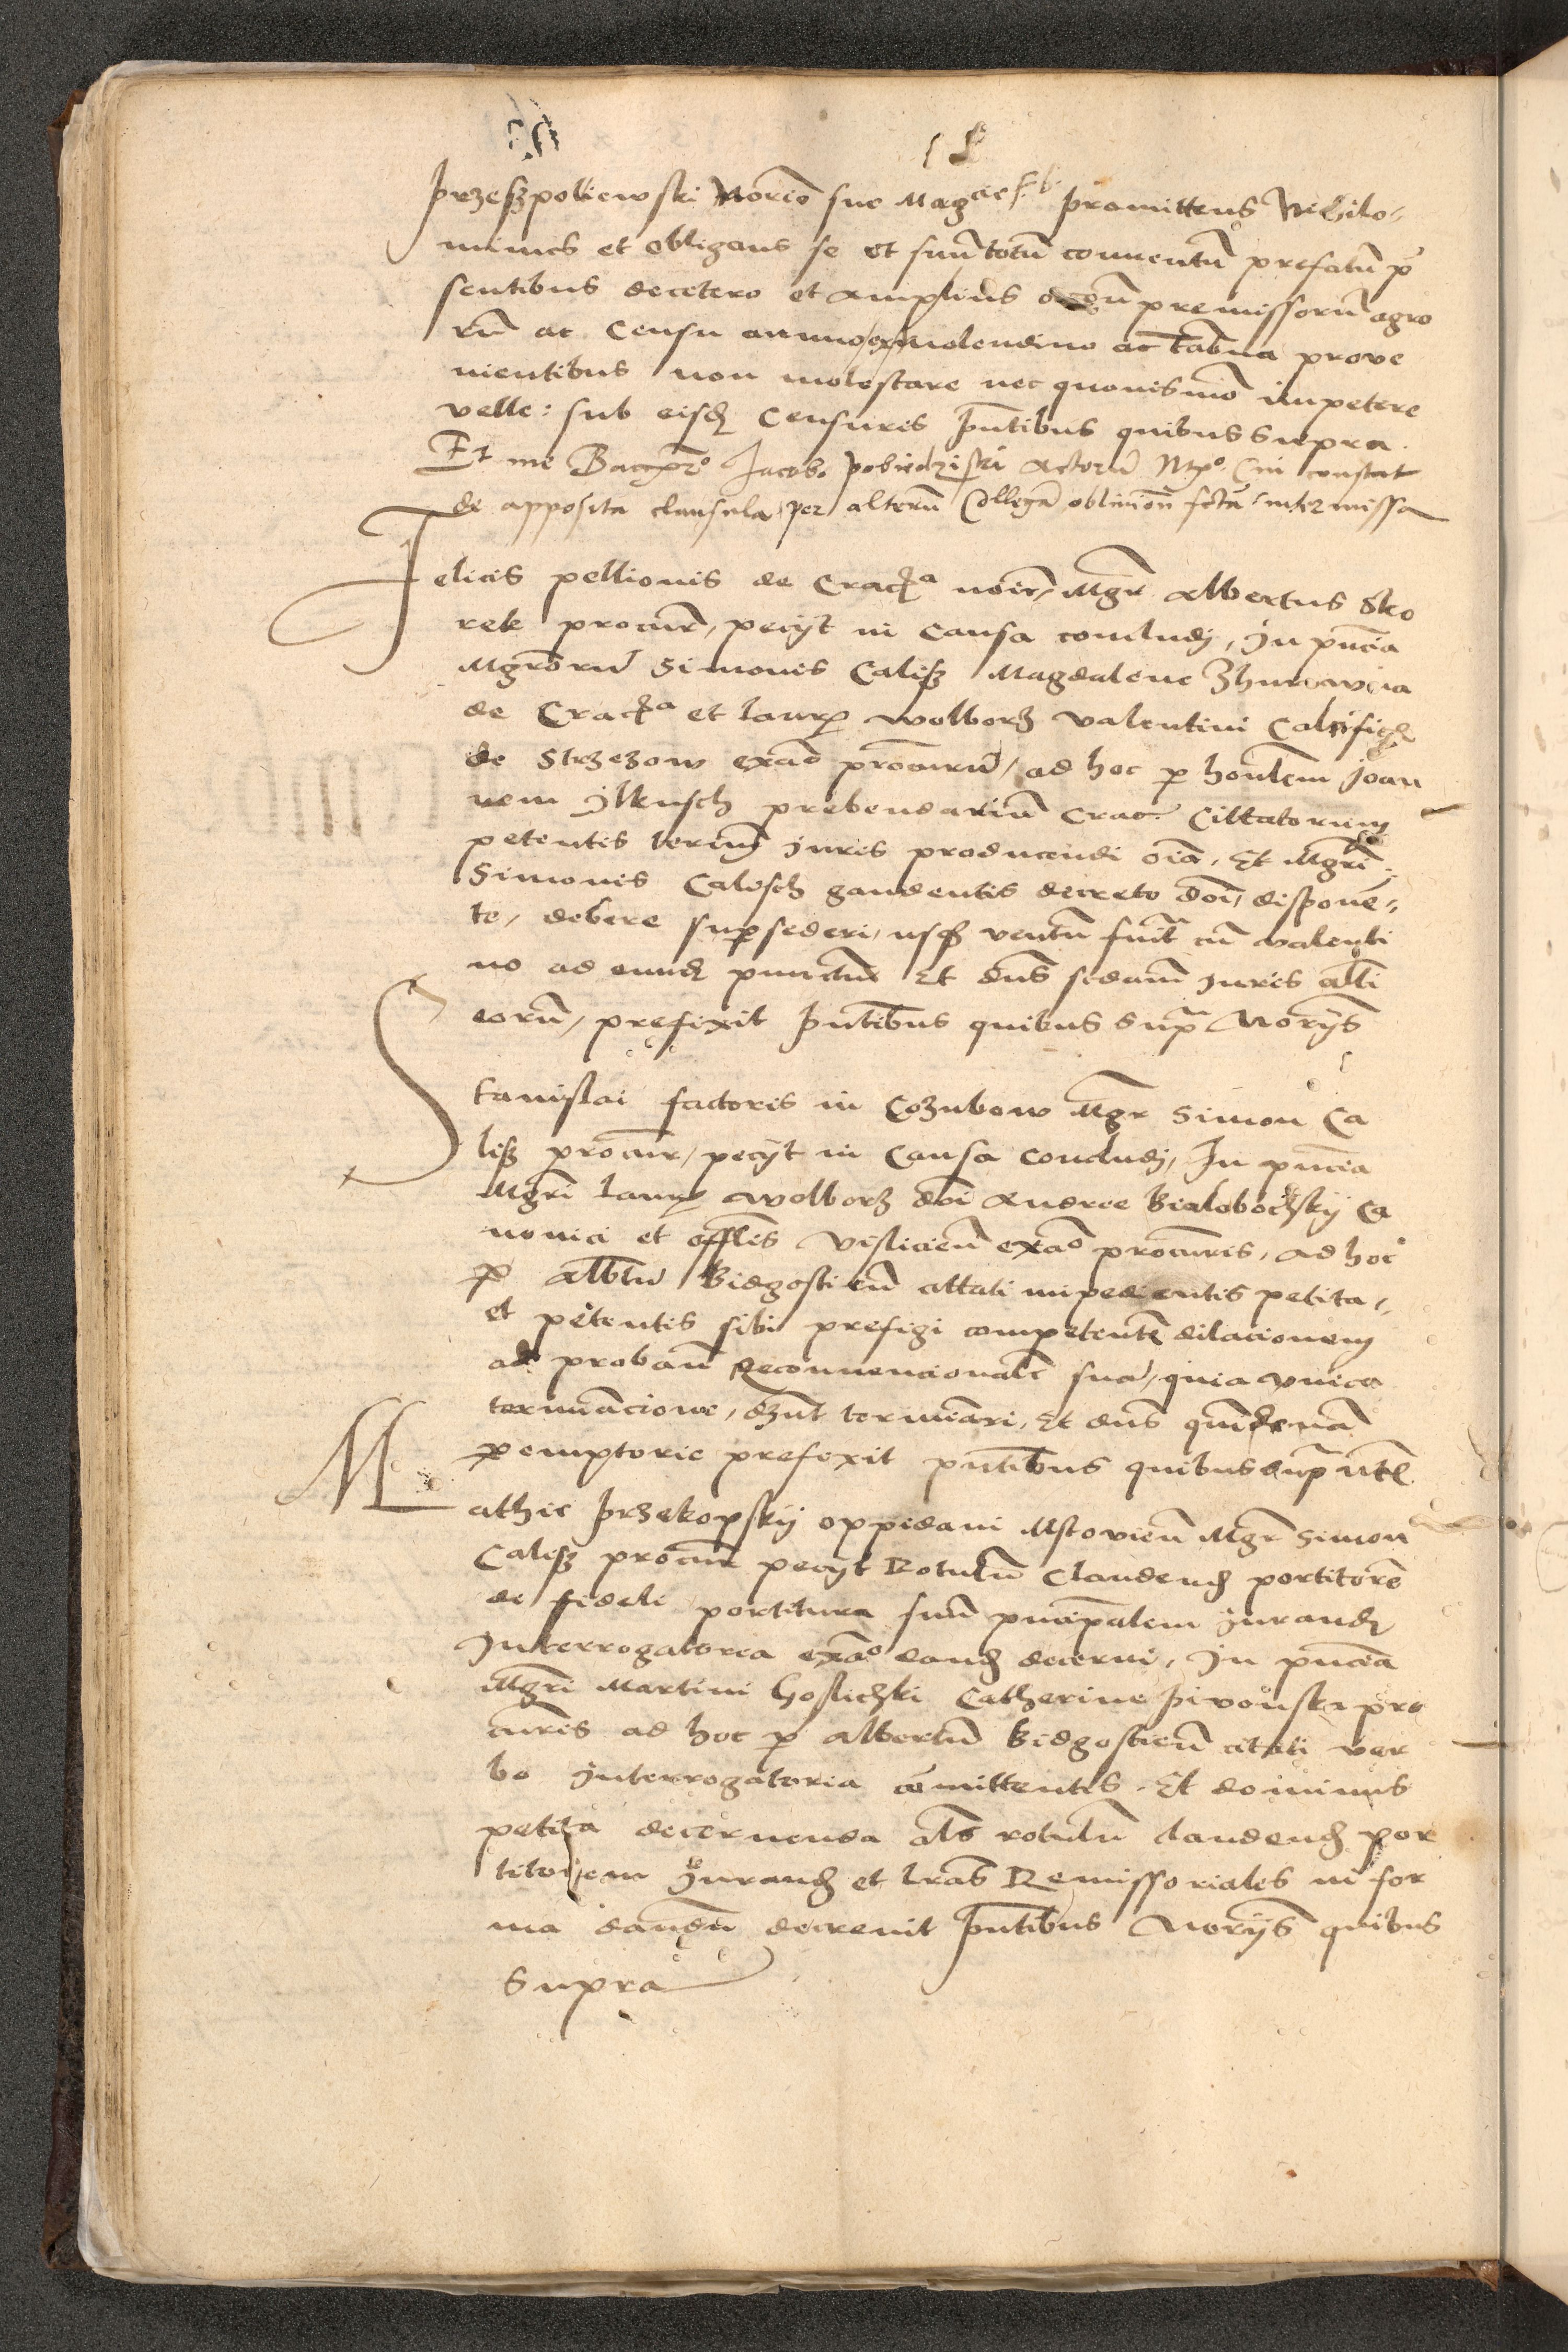 przeszpoliewski Norio sue Mag promittens Nihilo-
minus et obligans se et suũ totũ conventũ prefatũ p
sentibus decetero et amplius premissorũ agro
rũ ac Censu annuo ex molendino ac tabna prove
nientibus non molestare nec quovismõ impetere
velle: sub eisdẽ Censuris pñtibus quibus supra.
Et me Jacobo pobiedziski actorũ Ntro. constat
de apposita clausula per alterũ Collegã obliuioñ intermissa
Felicis pellionis de Cracia noie Mgr Albertus Sko
rek procur, pecijt in Causa concludj, In pñcia
Mgrorũ Simonis Calisz Magdalene
de Cracia et laurẽ wolborz valentini Calcifics
de Strzezow exao procurũ, ad hoc p honlem Joan
nem ylkusch prebendariũ Crac. Cittatorum
petentis termĩ Juris producendi oĩa, Et Mgri
Simonis Calisch gaudentis decreto dni, dispone-
te, debere supsederi, usq ventũ fuit cũ valenti
no ad eundẽ punctum Et dns sedam Juris alti
eorũ, prefixit pñtibus quibus supra Norijs
Stanislai factoris in Cozubow Mgr Simon Ca
lisz procur, pecijt in Causa concludj, In pñcia
Mgri laurẽ wolborz dni Andree Bialoboczskij Ca
nonici et offlis visliciẽn exao procuris, ad hoc
p albtũ Bidgosticũ cittati impedientis petita,
et petentis sibi prefigi competentẽ dilacionem
ad probañ Reconvencionalẽ suã, quia unica
terminacione, debent terminari, Et dns quindenã
peremptorie prefixit pñtibus quibus supra
Mathie przekopskij oppidani Mstovieñ Mgr Simon
Calisz procur pecijt Rotulũ Claudendũ portitorẽ
de fideli portitura suũ pncipalem jurandũ
Interrogatoria exao dandũ decerni, In pñcia
Mgri Martini Goslichski Catherine pivonska pro
curis ad hoc p albertũ Bidgosticũ citati ver
bo interrogatoria comittentis. Et dominus
petita decernenda als rotulũ claudendũ por
titorem Jurandũ et lras Remissoriales in for
ma dandũ decrevit pñtibus Norijs quibus
Supra